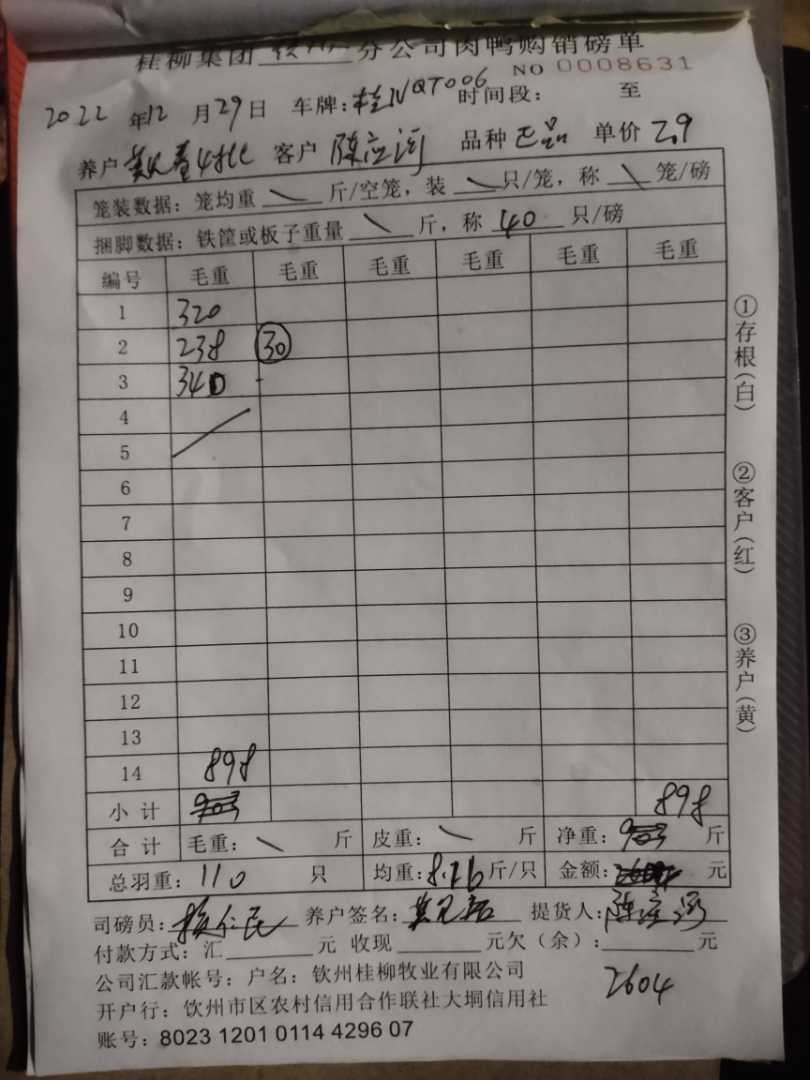 桂柳集团 钦州 分公司肉鸭购销磅单
NO 0008631
2022 年12 月29日 车牌:桂NQT006 时间段: 至
养户 客户 陈 品种 正品 单价 2.9
笼装数据:笼均重 \ 斤/空笼,装 \ 只/笼,称 \ 笼/磅
捆脚数据:铁筐或板子重量 \ 斤,称 40 只/磅
编号 毛重 毛重 毛重 毛重 毛重 毛重
1 320
2 238 30
3 340
4
5
6
7
8
9
10
11
12
13
14 898
小计 903 898
合计 毛重: \ 斤 皮重: \ 斤 净重: 903 斤
总羽重: 110 只 均重: 8.16 斤/只 金额: 元
司磅员: 养户签名: 提货人: 陈
付款方式:汇 元 收现 元欠(余): 元
公司汇款帐号:户名:钦州桂柳牧业有限公司
2604
开户行:钦州市区农村信用合作联社大垌信用社
账号:8023 1201 0114 4296 07
①存根(白)
②客户(红)
③养户(黄)